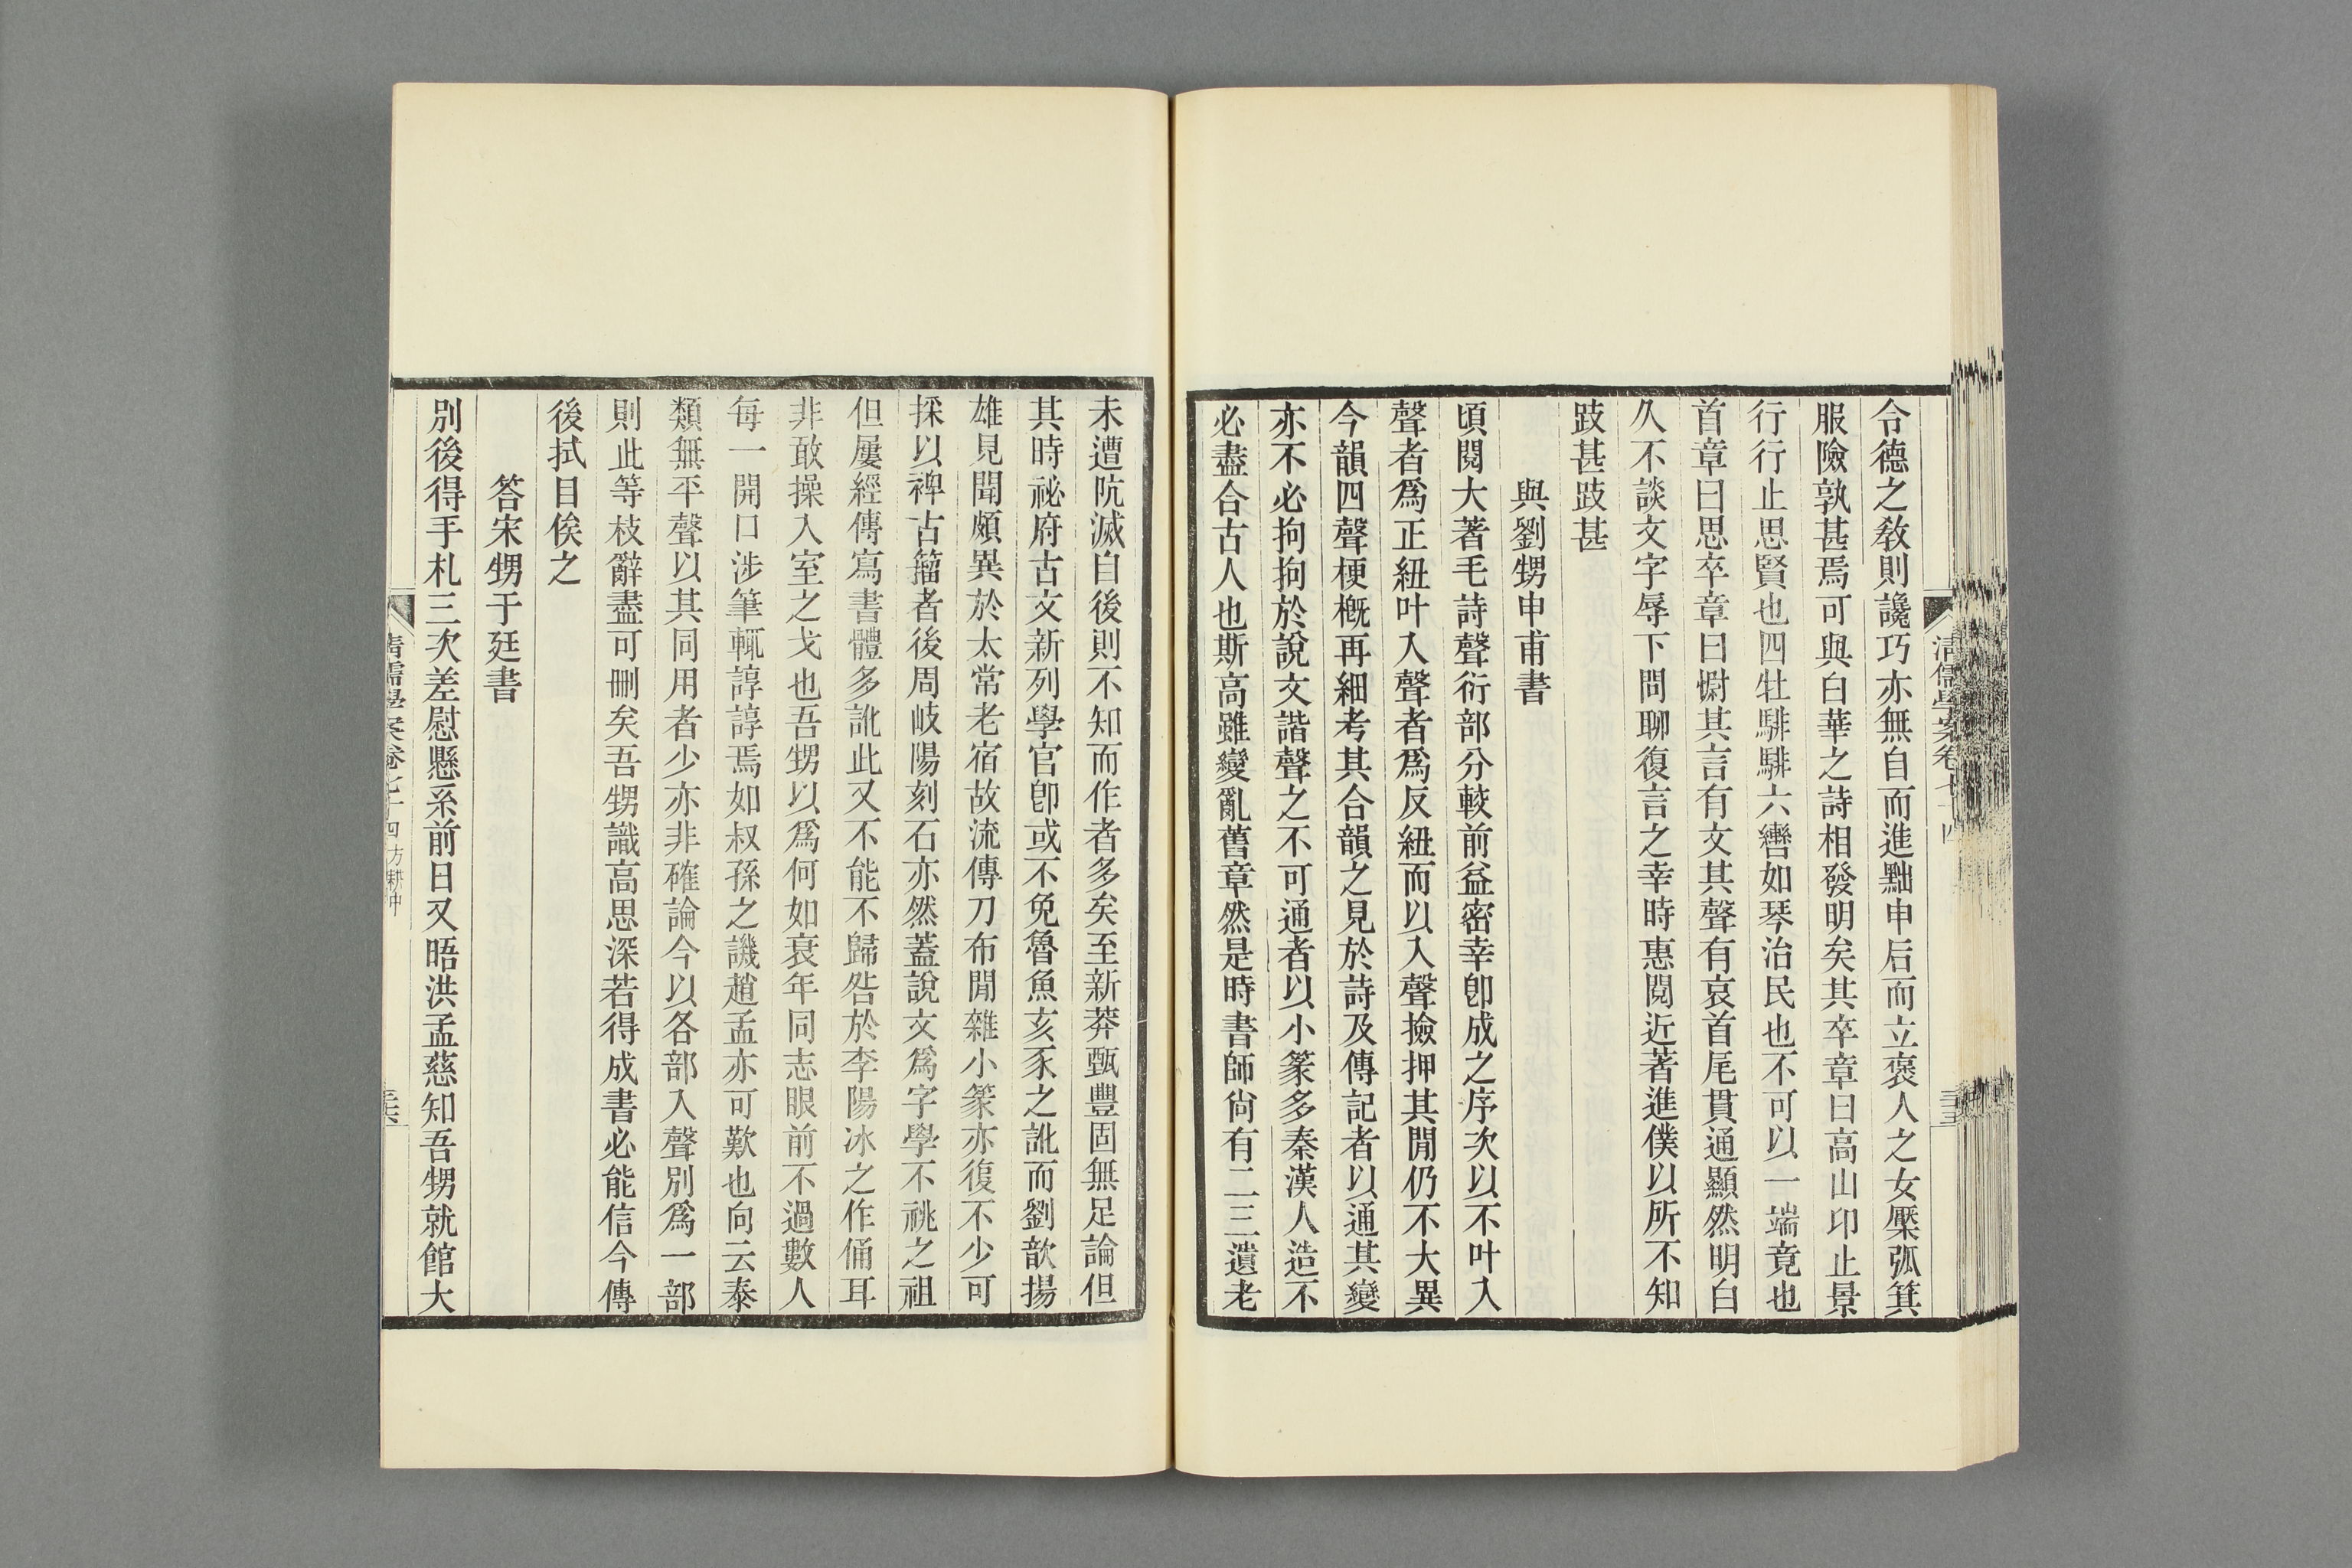 令德之敎則讒巧亦無自而進黜申后而立褒人之女檿弧箕
服險孰甚焉可與白華之詩相發明矣其卒章曰高山卬止景
行行止思賢也四牡騑騑六轡如琴治民也不可以一端竟也
首章曰思卒章曰慰其言有文其聲有哀首尾貫通顯然明白
久不談文字辱下問聊復言之幸時惠閱近著進僕以所不知
跂甚跂甚
與劉甥申甫書
頃閱大著毛詩聲衍部分較前益密幸卽成之序次以不叶入
聲者爲正紐叶入聲者爲反紐而以入聲撿押其閒仍不大異
今韻四聲梗槪再細考其合韻之見於詩及傳記者以通其變
亦不必拘拘於說文諧聲之不可通者以小篆多秦漢人造不
必盡合古人也斯高雖變亂舊章然是時書師尙有二三遺老
未遭阬滅自後則不知而作者多矣至新莽甄豐固無足論但
其時祕府古文新列學官卽或不免魯魚亥豕之訛而劉歆揚
雄見聞頗異於太常老宿故流傳刀布閒雜小篆亦復不少可
採以裨古籀者後周岐陽刻石亦然蓋說文爲字學不祧之祖
但屢經傳寫書體多訛此又不能不歸咎於李陽冰之作俑耳
非敢操入室之戈也吾甥以爲何如衰年同志眼前不過數人
每一開口涉筆輒諄諄焉如叔孫之譏趙孟亦可歎也向云泰
類無平聲以其同用者少亦非確論今以各部入聲別爲一部
則此等枝辭盡可刪矣吾甥識高思深若得成書必能信今傳
後拭目俟之
答宋甥于廷書
別後得手札三次差慰懸系前日又晤洪孟慈知吾甥就館大
清儒學案卷七十四
清儒學案卷七十四 方耕中